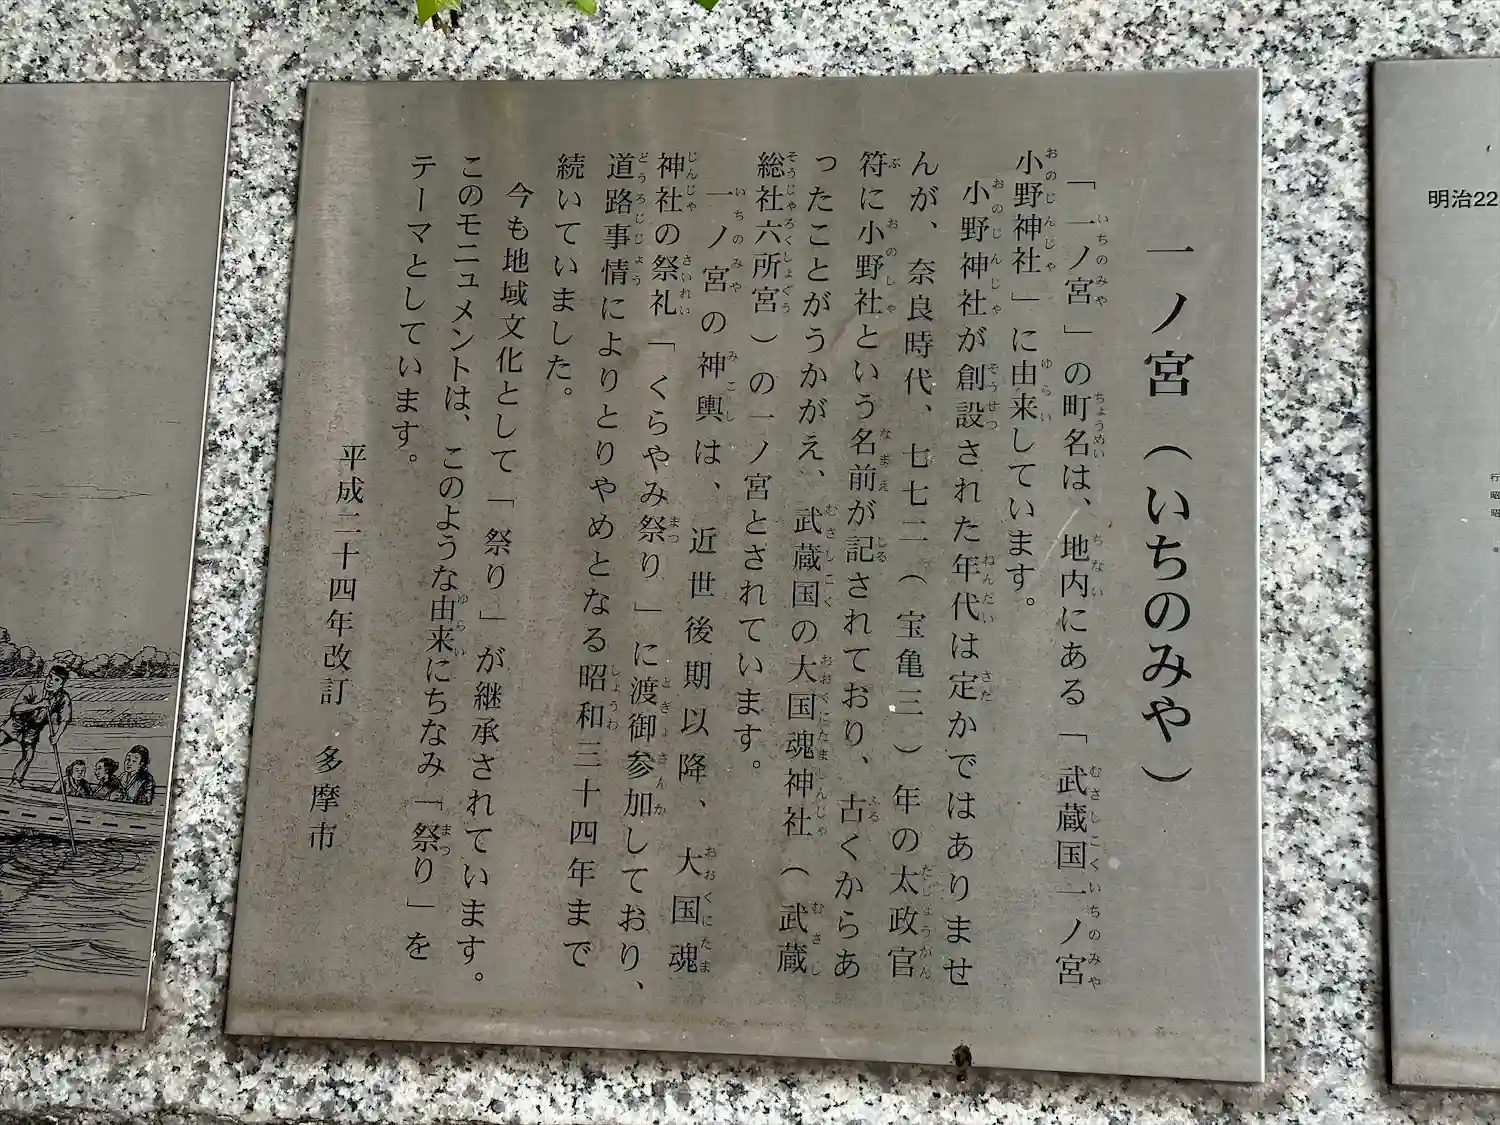 一ノ宮（いちのみや）
「一ノ宮」の町名は、地内にある「武蔵国一ノ宮
小野神社」に由来しています。
小野神社が創設された年代は定かではありませ
んが、奈良時代、七七二（宝亀三）年の太政官
符に小野社という名前が記されており、古くからあ
ったことがうかがえ、武蔵国の大国魂神社（武蔵
総社六所宮）の一ノ宮とされています。
一ノ宮の神輿は、近世後期以降、大国魂
神社の祭礼「くらやみ祭り」に渡御参加しており、
道路事情によりとりやめとなる昭和三十四年まで
続いていました。
今も地域文化として「祭り」が継承されています。
このモニュメントは、このような由来にちなみ「祭り」を
テーマとしています。
平成二十四年改訂 多摩市
明治22